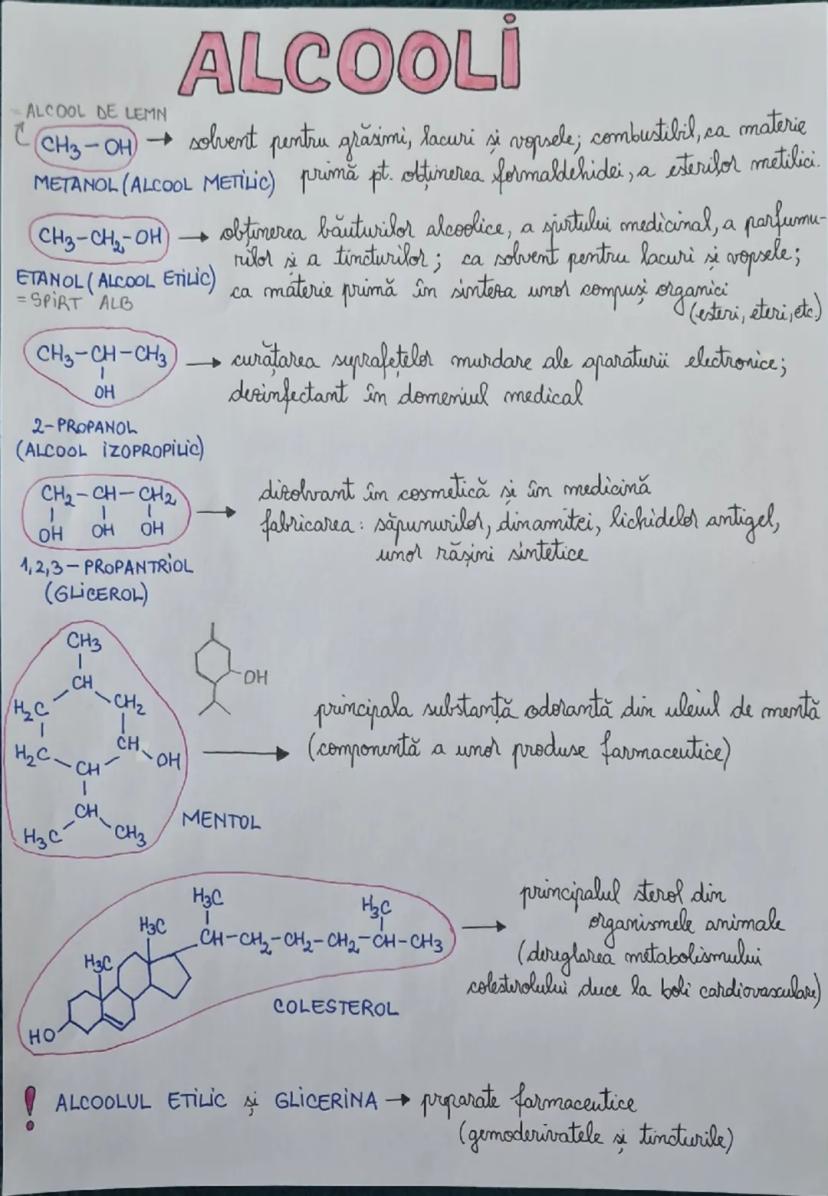 ALCOOLI
ALCOOL DE LEMN
CH3-OH → solvent pentru grăsimi, lacuri și vopsele; combustibil, ca materie
METANOL (ALCOOL METILIC) primă pt. obținerea formaldehidei, a esterilor metilici.
CH3-CH2-OH → obținerea băuturilor alcoolice, a spirtului medicinal, a parfumu-
rilor și a tincturilor; ca solvent pentru lacuri și vopsele;
ETANOL (ALCOOL ETILIC) ca materie primă în sinteza unor compuși organici
= SPIRT ALB (esteri, eteri, etc.)
CH3-CH-CH3 → curățarea suprafețelor murdare ale aparaturii electronice;
OH dezinfectant în domeniul medical
2-PROPANOL
(ALCOOL IZOPROPILIC)
CH2-CH-CH2 → dizolvant în cosmetică și în medicină
OH OH OH fabricarea: săpunurilor, dinamitei, lichidelor antigel,
unor rășini sintetice
1,2,3-PROPANTRIOL
(GLICEROL)
CH3
CH
H2C CH2
H2C CH OH
CH
CH
H3C CH3
OH
MENTOL
principala substanță odorantă din uleiul de mentă
(componentă a unor produse farmaceutice)
H3C H3C
H3C CH-CH2-CH2-CH2-CH-CH3
H3C
HO
COLESTEROL
principalul sterol din
organismele animale
(dereglarea metabolismului
colesterolului duce la boli cardiovasculare)
! ALCOOLUL ETILIC și GLICERINA → preparate farmaceutice
(gemoderivatele și tincturile)